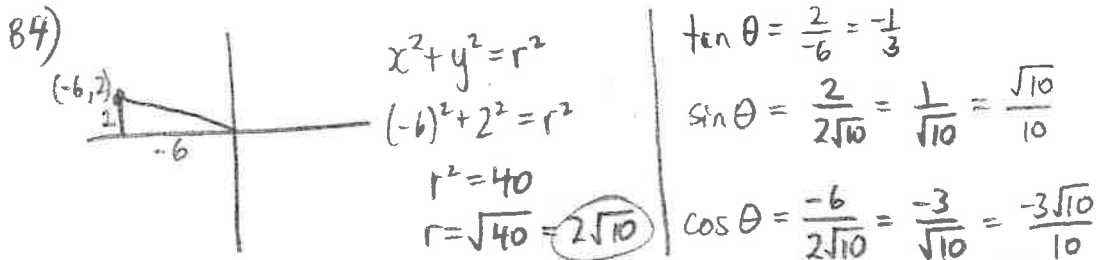 84)
(-6,2)
2
-6
x² + y² = r²
(-6)² + 2² = r²
r² = 40
r = √40 = 2√10
tan θ = 2/-6 = -1/3
sin θ = 2/2√10 = 1/√10 = √10/10
cos θ = -6/2√10 = -3/√10 = -3√10/10